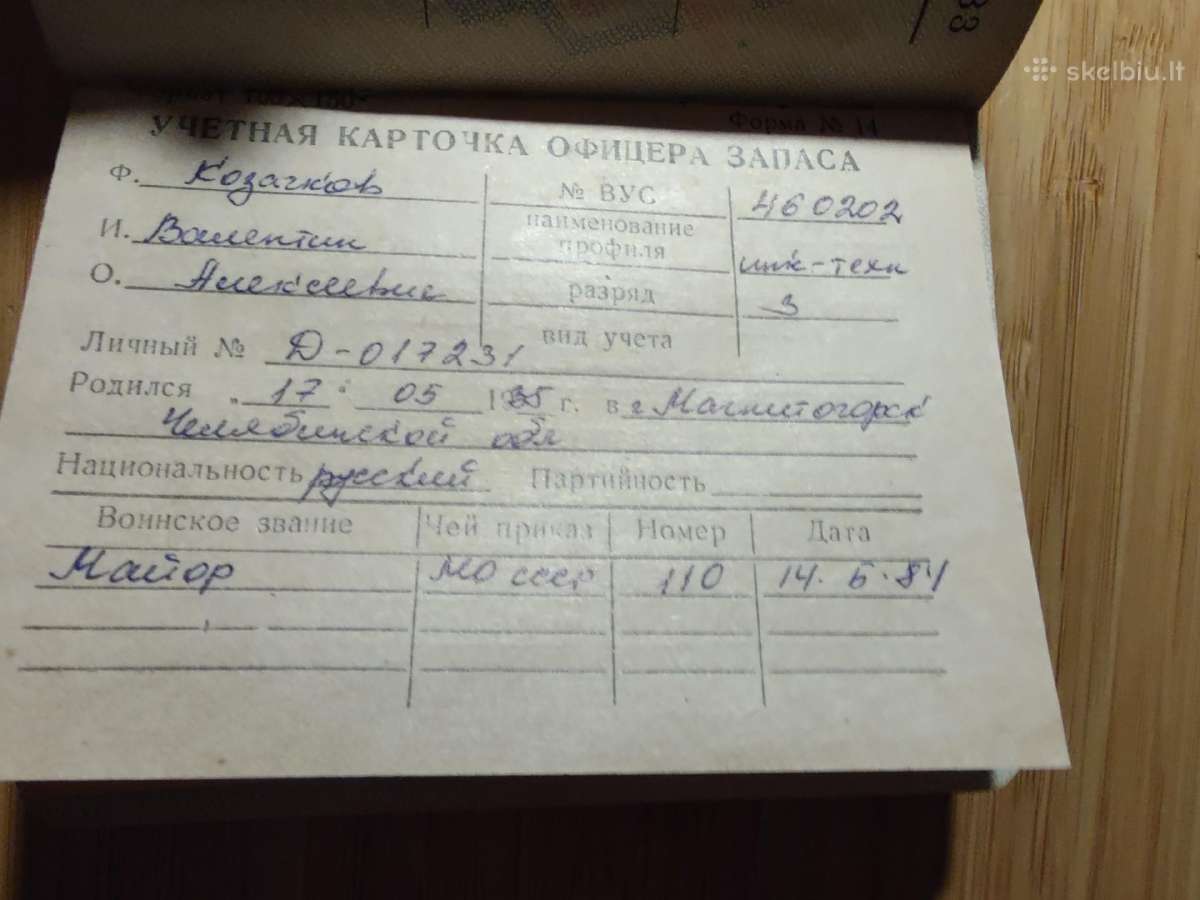 skelbiu.lt
Форма № 14
УЧЕТНАЯ КАРТОЧКА ОФИЦЕРА ЗАПАСА
Ф. Козачков № ВУС 460202
И. Валентин наименование профиля инж-техн
О. Алексеевич разряд 3
вид учета
Личный № Д-017231
Родился „17" 05 1935 г. в г Магнитогорск
Челябинской обл
Национальность русский Партийность
Воинское звание Чей приказ Номер Дата
Майор МО СССР 110 14.5.84